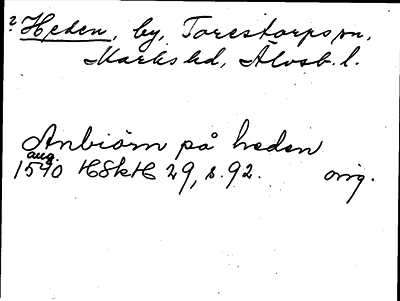 ? Heden, by, Torestorps sn,
Marks hd, Älvsb. l.
Anbiörn på heden
aug.
1540 HSkH 29, s. 92. orig.